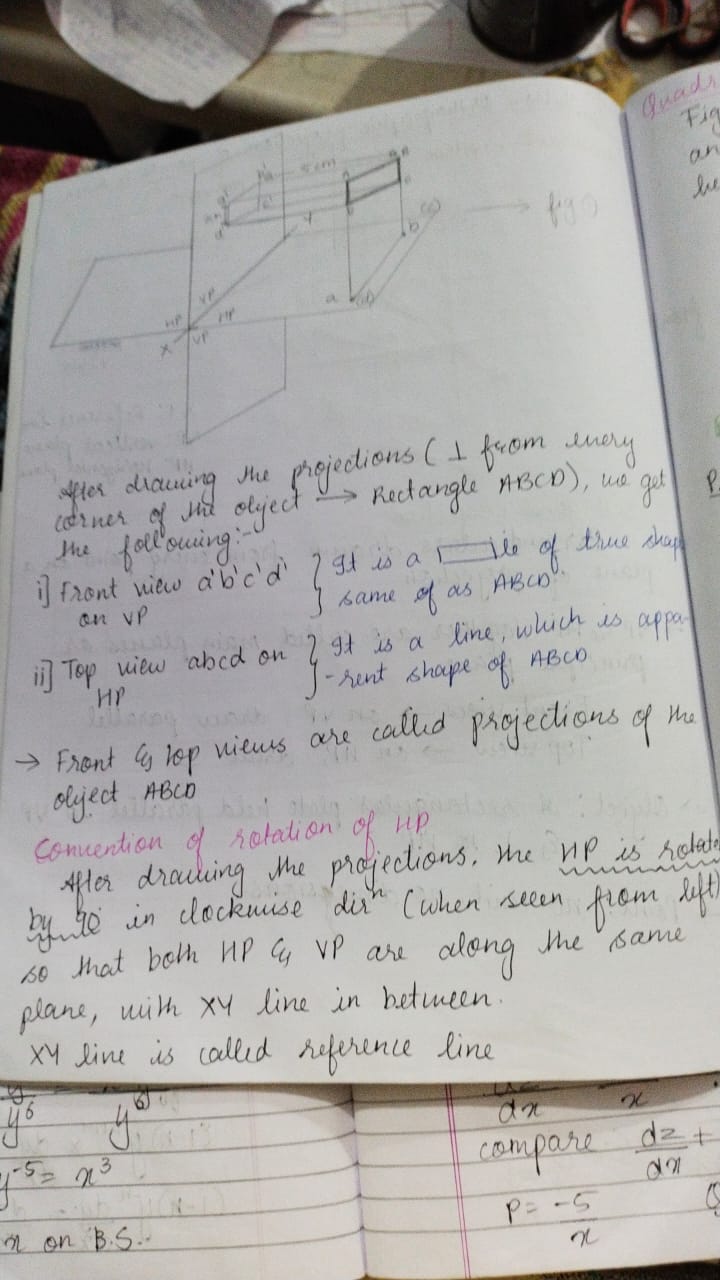 Quadr
Fig
an
5 cm
Y
fig
b
a
(d)
VP
HP
HP
X
VP
After drawing the projections (⊥ from every
corner of the object → Rectangle ABCD), we get
the following:-
i] Front view a'b'c'd' } It is a ▭le of true shap
on VP } same of as ABCD.
ii] Top view abcd on } It is a line, which is appa-
HP } -rent shape of ABCD
→ Front & top views are called projections of the
object ABCD
Convention of rotation of HP
After drawing the projections, the HP is rotate
by 90° in clockwise dirⁿ (when seen from left)
so that both HP & VP are along the same
plane, with XY line in between.
XY line is called reference line
y⁶ y⁶
y⁻⁵ = x³
x on B.S.
dx x
compare dz +
dx
P = -5
x